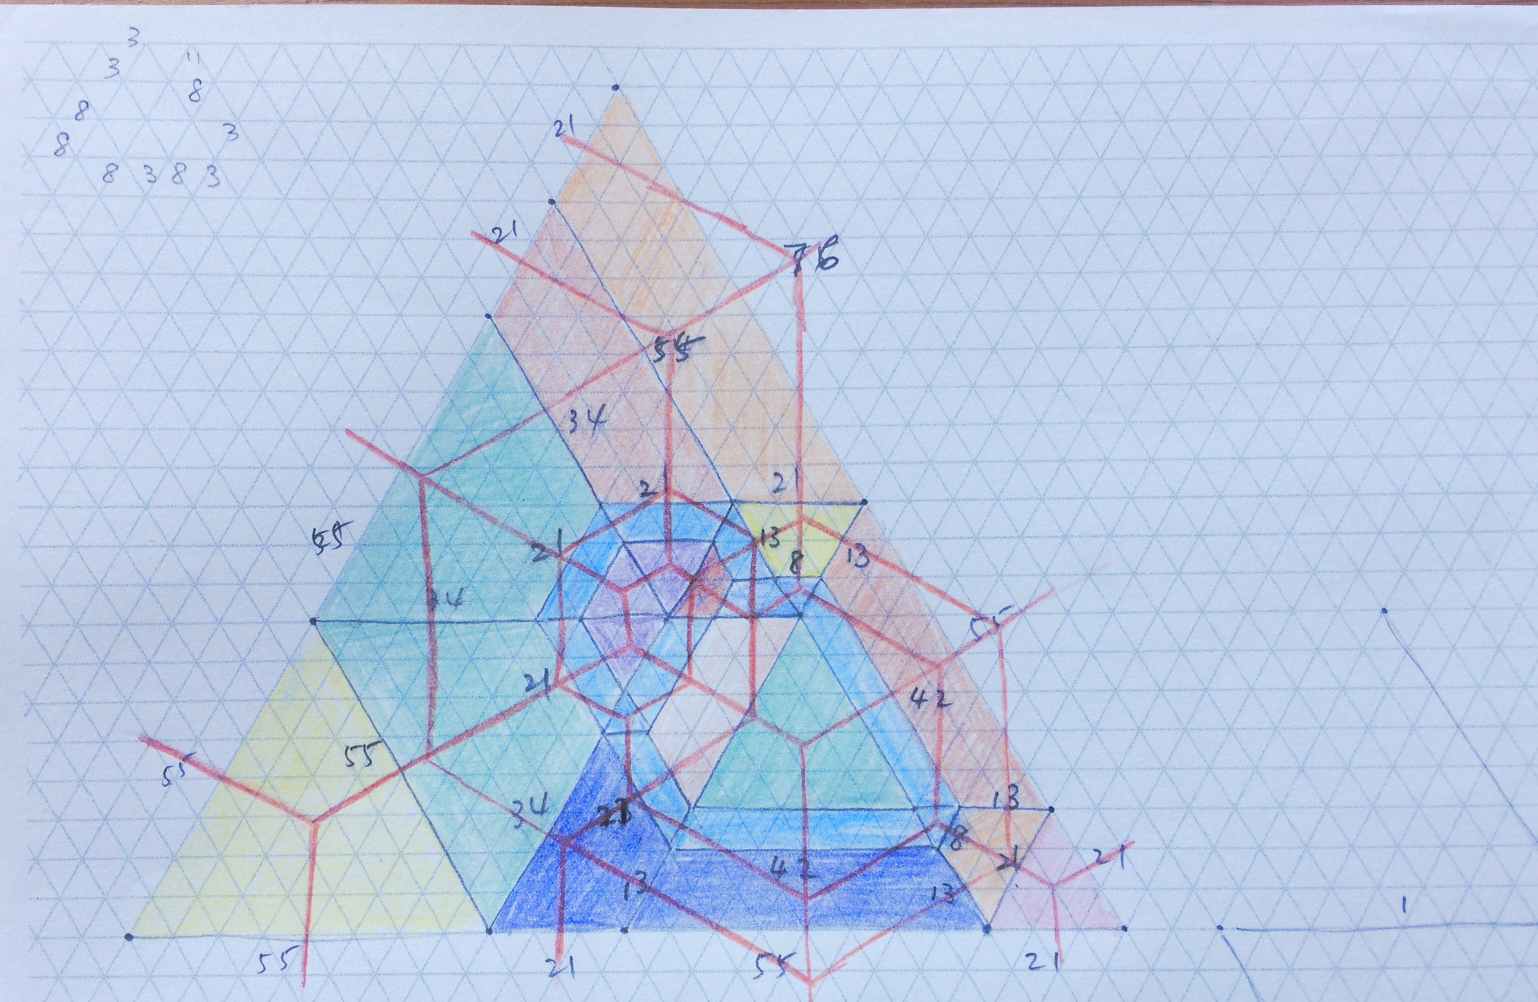 3
3 11
8
8
3
8
8 3 8 3
21
21
76
55
34
21
2
55
21
13
8
13
34
55
21
42
55
34
13
55
18
21
21
42
13
13
1
55
21
55
21